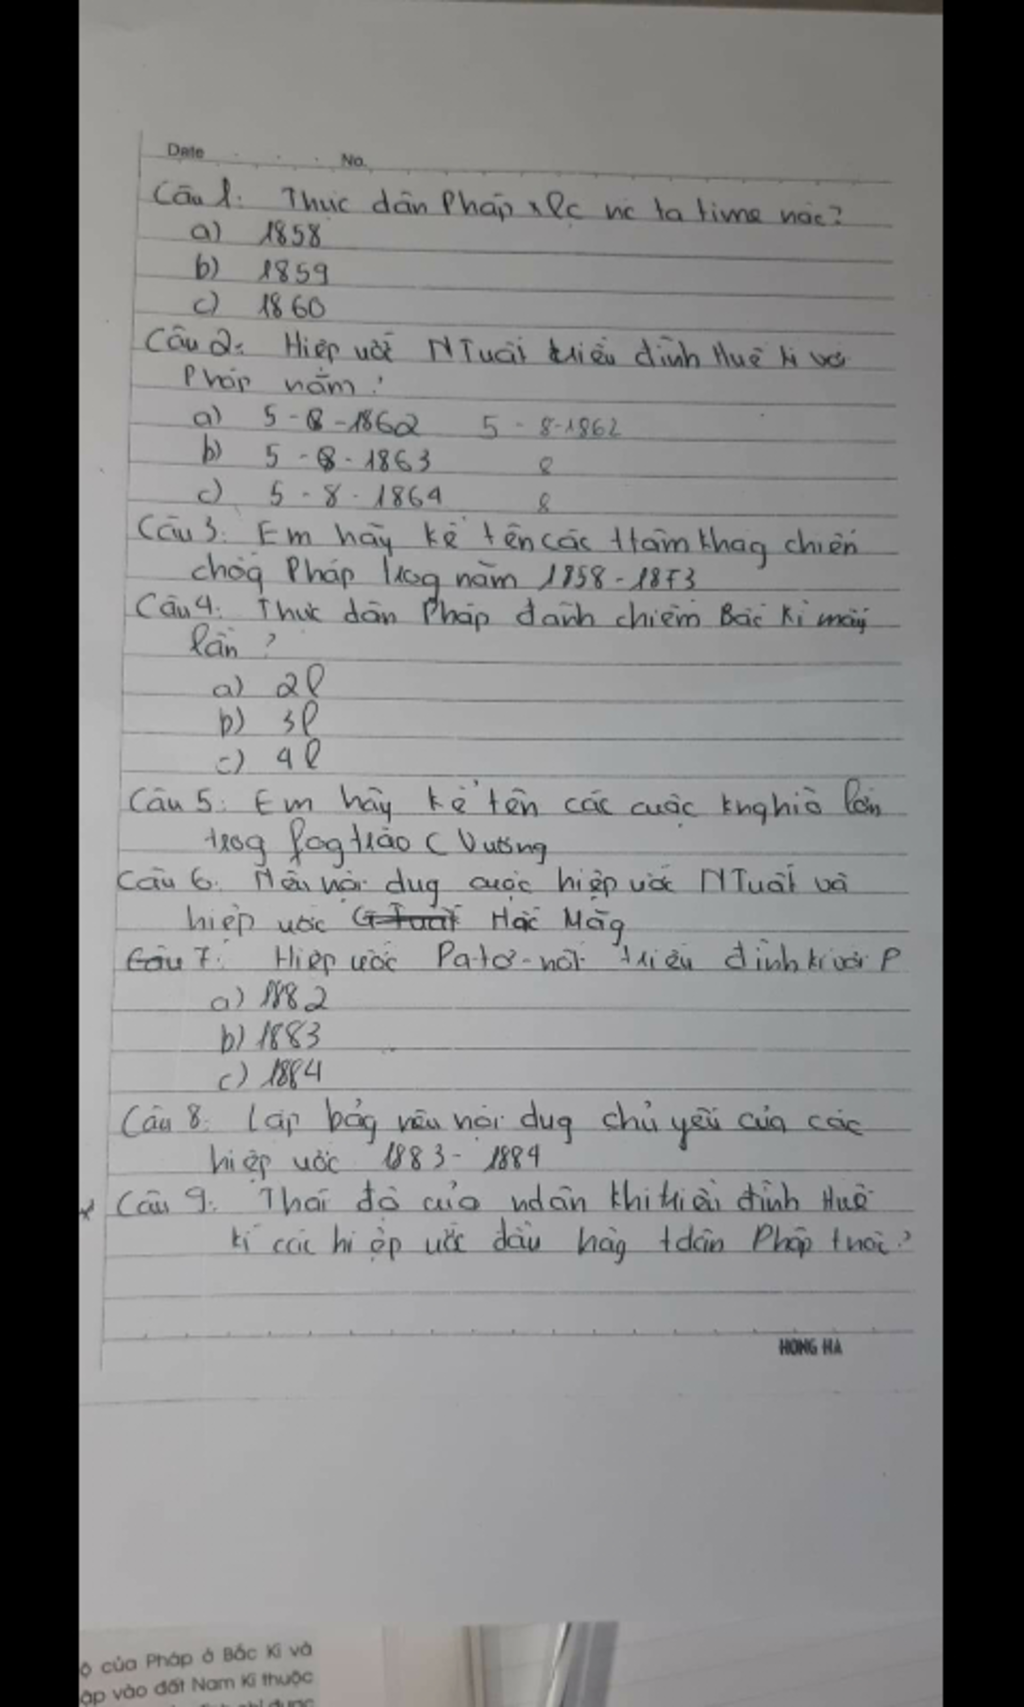 Date No.
Câu 1. Thực dân Pháp xlc nc ta time nào?
a) 1858
b) 1859
c) 1860
Câu 2: Hiệp ước NTuất triều đình Huế kí với
Pháp năm?
a) 5-8-1862 5-8-1862
b) 5-8-1863 8
c) 5-8-1864 8
Câu 3. Em hãy kể tên các ttâm khág chiến
chốg Pháp trog năm 1858-1873
Câu 4. Thực dân Pháp đánh chiếm Bắc Kì mấy
lần?
a) 2l
b) 3l
c) 4l
Câu 5: Em hãy kể tên các cuộc knghĩa lớn
trog fog trào C Vương
Câu 6. Nêu nội dug cuộc hiệp ước NTuất và
hiệp ước Hác Măg
Câu 7: Hiệp ước Pa-tơ-nốt triều đình kí với P
a) 1882
b) 1883
c) 1884
Câu 8. Lập bảg nêu nội dug chủ yếu của các
hiệp ước 1883-1884
x Câu 9. Thái độ của ndân khi triều đình Huế
kí các hiệp ước đầu hàg tdân Pháp tnào?
HONG HA
ộ của Pháp ở Bắc Kì và
ập vào đất Nam Kì thuộc